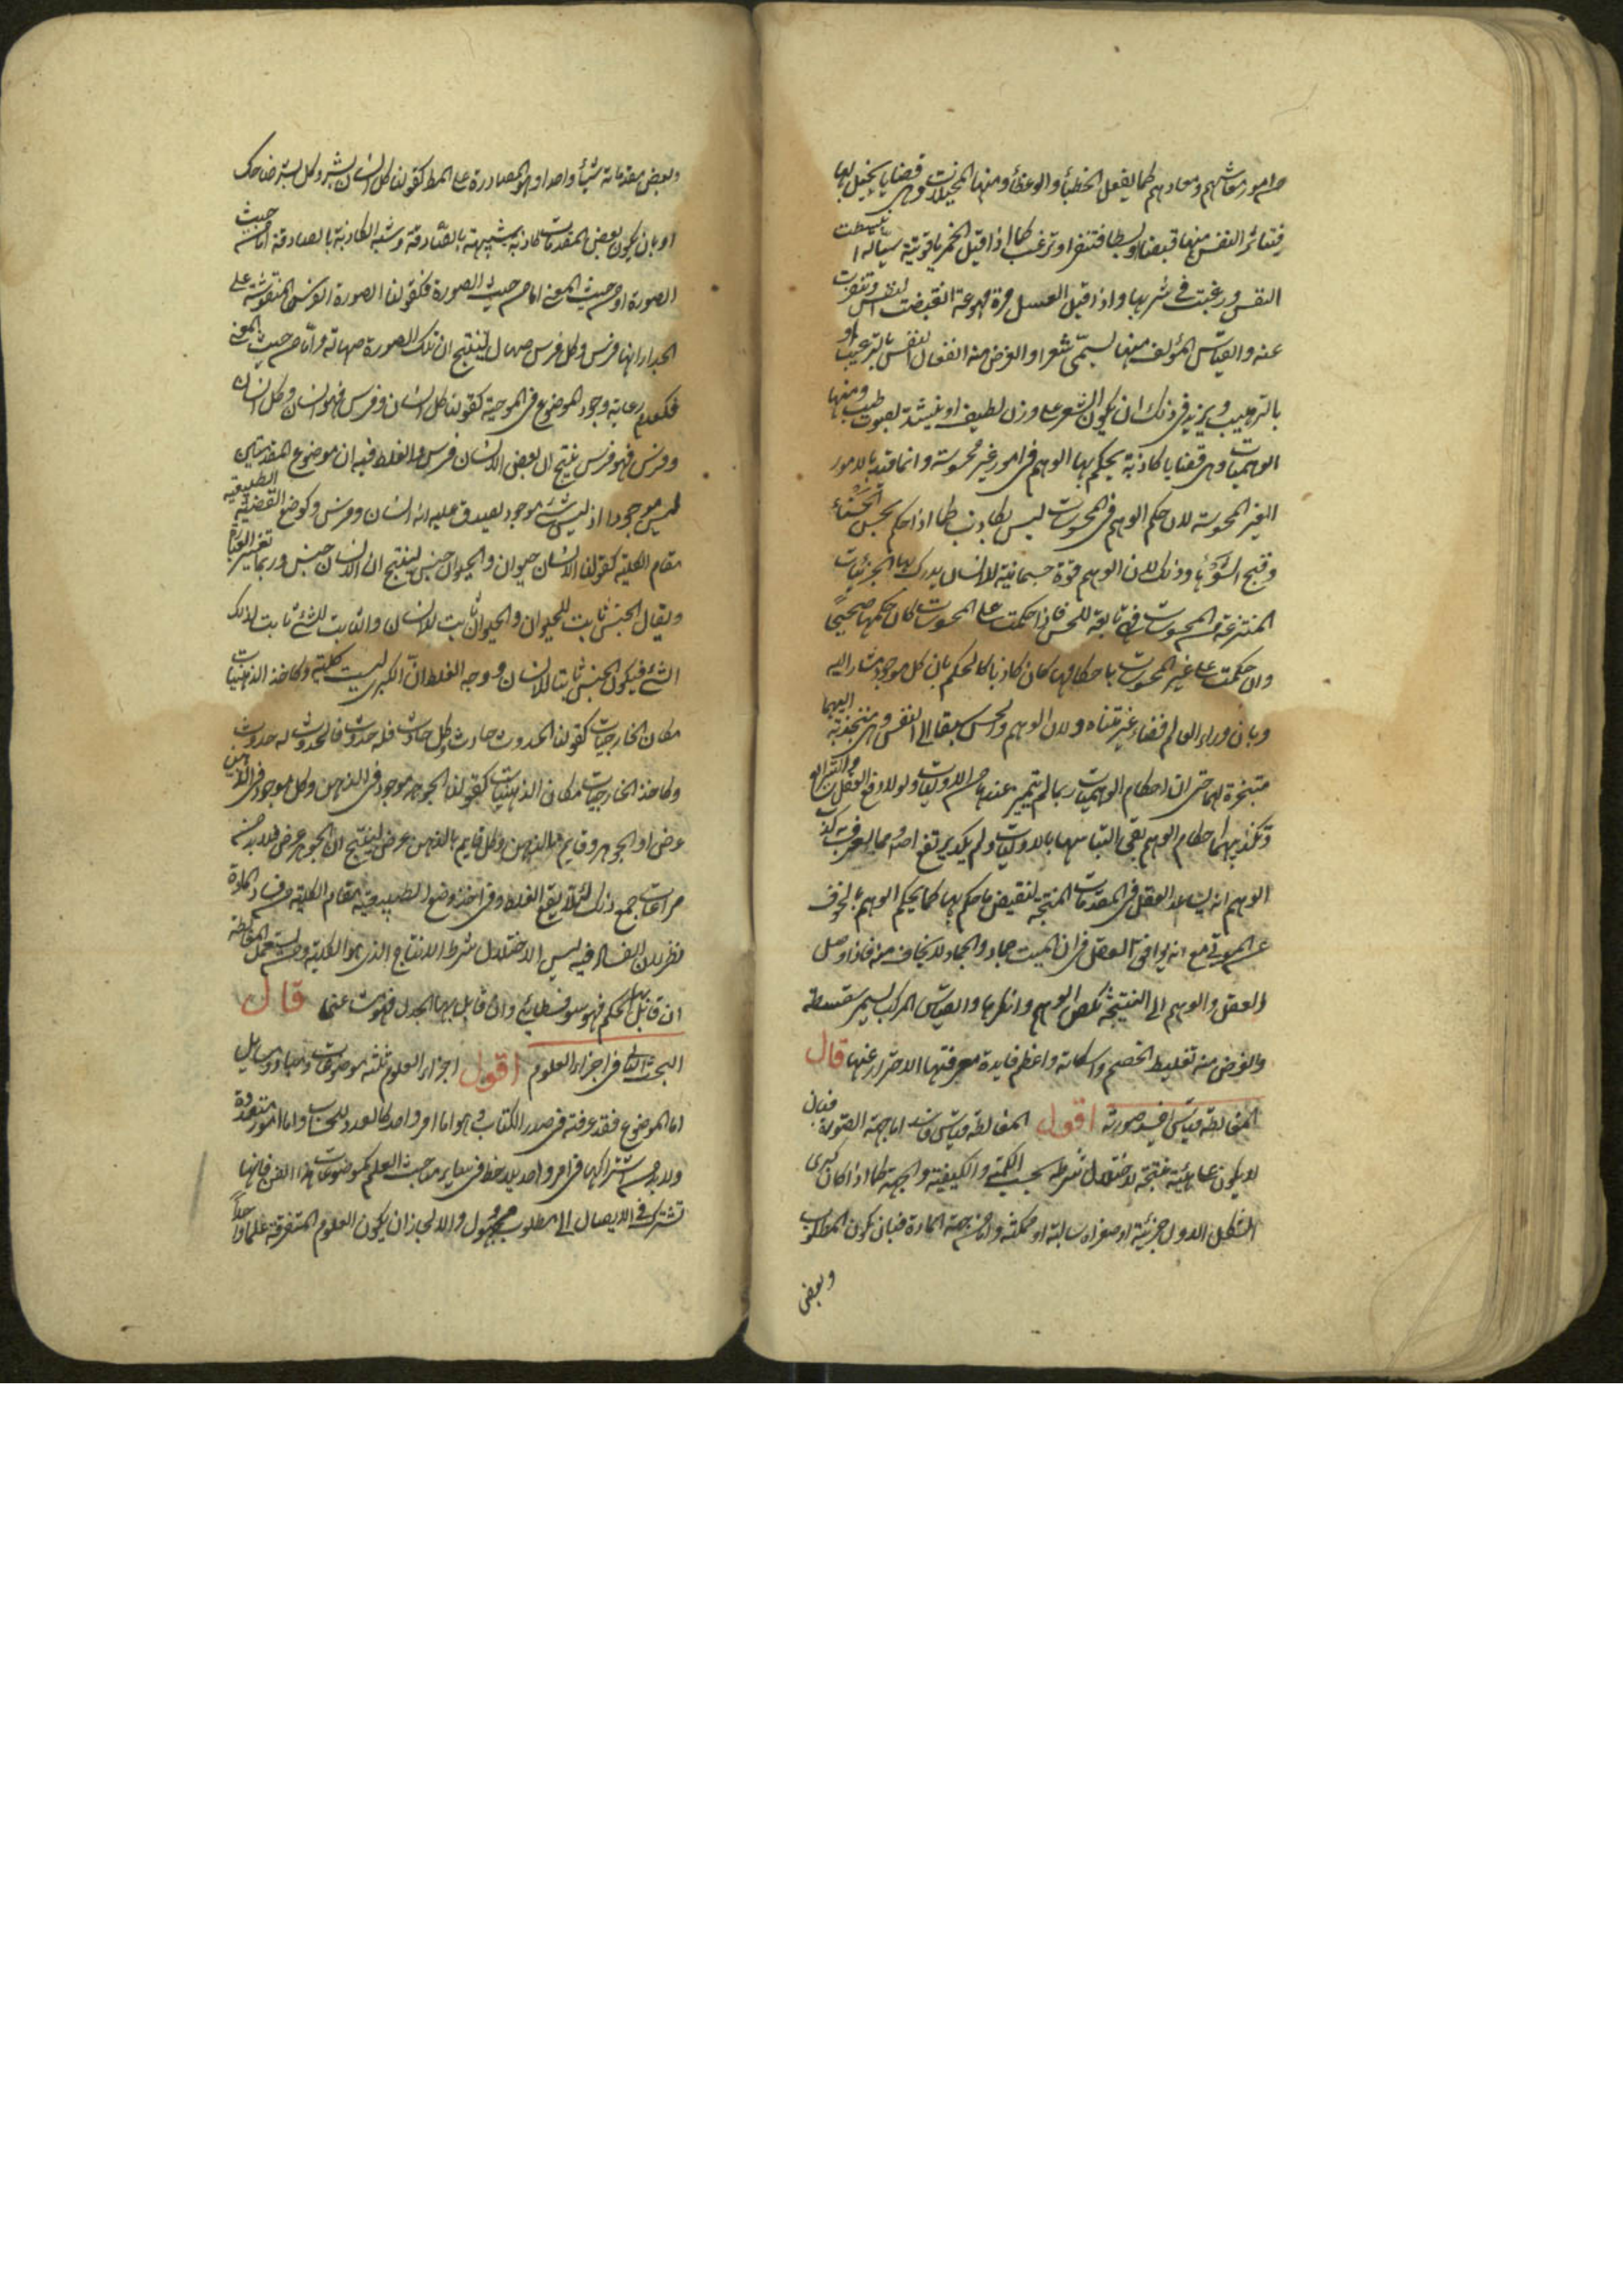 من امور معاشهم ومعادهم كما يفعل الخطبأ والوعظأ ومنها المخيلات وهى قضايا يخيل بها
فتتأثر النفس منها قبضا وبسطا فتنفر او ترغب كما اذا قيل الخمر ياقوتية سيالة انبسطت
النفس ورغبت فى شربها واذا قيل العسل مرة مهوعة انقبضت النفس وتنفرت
عنه والقياس المؤلف منها يسمّى شعرا والغرض منه انفعال النفس بالترغيب او
بالترهيب ويزيد فى ذلك ان يكون الشعر على وزن لطيف او ينشد بصوت طيب ومنها
الوهميات وهى قضايا كاذبة يحكم بها الوهم فى امور غير محسوسة وانما قيد بالامور
الغير المحسوسة لان حكم الوهم فى المحسوسات ليس بكاذب كما اذا حكم بحسن الحسنأ
وقبح الشوها وذلك لان الوهم قوة جسمانية للانسان يدرك بها الجزئيات
المنتزعة من المحسوسات فهى تابعة للحس فاذا حكمت على المحسوسات كان حكمها صحيحًا
وان حكمت على غير المحسوسات باحكامها كان كاذبا كالحكم بان كل موجود مشار اليه
وبان وراء العالم فضاء غير متناه ولان الوهم والحس سبقا الى النفس وهى منجذبة اليهما
مسخرة لهما حتى ان احكام الوهميات ربما لم يتميز عندها من الاوليات ولولا دفع العقل والشرائع
وتكذيبهما احكام الوهم بقى التباسها بالاوليات ولم يكد يرتفع اصلا ومما يعرف به كذب
الوهم انه يساعد العقل فى المقدمات المنتجة لنقيض ما حكم بها كما يحكم الوهم بالخوف
عن الموتى مع انه يوافق العقل فى ان الميت جماد والجماد لا يخاف منه فاذا وصل
العقل والوهم الى النتيجة نكص الوهم وانكرها والقياس المركب يسمى سفسطة
والغرض منه تغليط الخصم واسكاته واعظم فايدة معرفتها الاحتراز عنها قال
المغالطة قياس افسد صورته اقول المغالطة قياس فاسد اما من جهة الصورة فبان
لا يكون على هيئة منتجة لاختلال شرط بحسب الكمية والكيفية والجهة كما اذا كان كبرى
الشكل الاول جزئية او صغراه سالبة او ممكنة واما من جهة المادة فبان يكون المطلوب
وبعض
وبعض مقدماته شيأ واحدا وهو المصادرة على المط كقولنا كل انسان بشر وكل بشر ضحاك
او بان يكون بعض المقدمات كاذبة شبيهة بالصّادقة وشبه الكاذبة بالصادقة اما من حيث
الصورة او من حيث المعنى اما من حيث الصورة فكقولنا لصورة الفرس المنقوشة على
الجدار انها فرس وكل فرس صهال ينتج ان تلك الصورة صهالة وامّا من حيث المعنى
فكعدم رعاية وجود الموضوع فى الموجبة كقولنا كل انسان وفرس فهو انسان وكل انسان
وفرس فهو فرس ينتج ان بعض الانسان فرس والغلط فيه ان موضوع المقدمتين
ليس موجودا اذ ليس شئ موجود يصدق عليه انه انسان وفرس وكوضع القضية الطبيعية
مقام الكلية كقولنا الانسان حيوان والحيوان جنس ينتج ان الانسان جنس وربما يغير العبارة
ويقال الجنس ثابت للحيوان والحيوان ثابت للانسان والثابت للثابت للشئ ثابت لذلك
الشئ فيكون الجنس ثابتا للانسان ووجه الغلط انّ الكبرى ليست كلية وكاخذ الذهنيات
مكان الخارجيات كقولنا الحدوث حادث وكل حادث فله حدوث فالحدوث له حدوث
وكاخذ الخارجيات مكان الذهنيات كقولنا الجوهر موجود فى الذهن وكل موجود فى الذهن
عرض او الجوهر وقايم بالذهن وكل قايم بالذهن عرض لينتج ان الجوهر عرض فلا بد من
مراعات جميع ذلك لئلا يقع الغلط وفى اخذ وضع الطبيعية مقام الكلية من فساد المادة
نظر لان الفساد فيه ليس الا لاختلال شرط الانتاج الذى هو الكلية ومن يستعمل المغالطة
ان قابل بها الحكيم فهو سوفسطائى وان قابل بها الجدلى فهو مشاغبى قال
البحث الثانى فى اجزاء العلوم اقول اجزاء العلوم ثلثة موضوعات ومباد ومسايل
اما الموضوع فقد عرفته فى صدر الكتاب وهو اما امر واحد كالعدد للحساب واما امور متعددة
ولا بد من اشتراكها فى امر واحد يلاحظ فى ساير مباحث العلم كموضوعات هذا الفن فانها
تشترك فى الايصال الى مطلوب مجهول والا لجاز ان يكون العلوم المتفرقة علما واحدًا